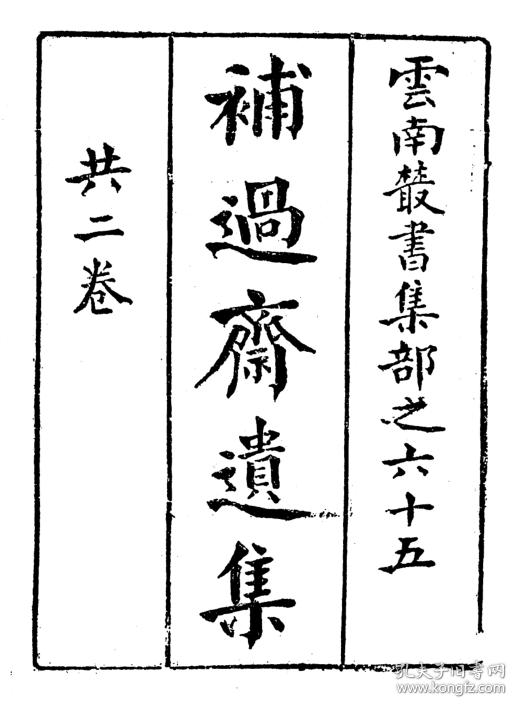 雲南叢書集部之六十五
補過齋遺集
共二卷
孔夫子旧书网
www.kongfz.com